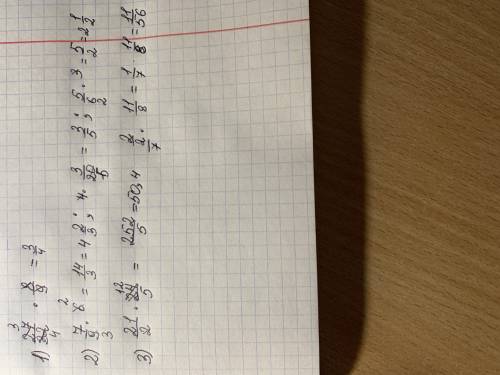 1) 27/32 · 8/9 = 3/4
2) 7/9 · 6 = 14/3 = 4 2/3; 4 · 3/20 = 3/5; 5/6 · 3 = 5/2 = 2 1/2
3) 21/2 · 24/5 = 252/5 = 50,4 11/8 = 1/7 · 11/8 = 11/56